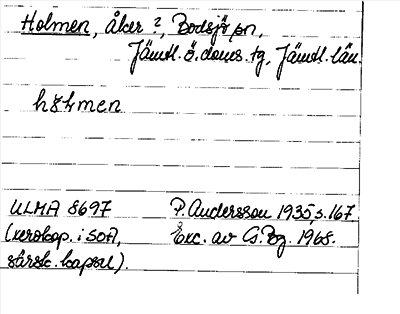 Holmen, åker?, Bodsjö sn,
Jämtl. ö. doms. tg, Jämtl. län.
ULMA 8697 P. Andersson 1935, s. 167.
(xerokop. i SOA, Exc. av G. Bg. 1968.
särsk. kapsel).